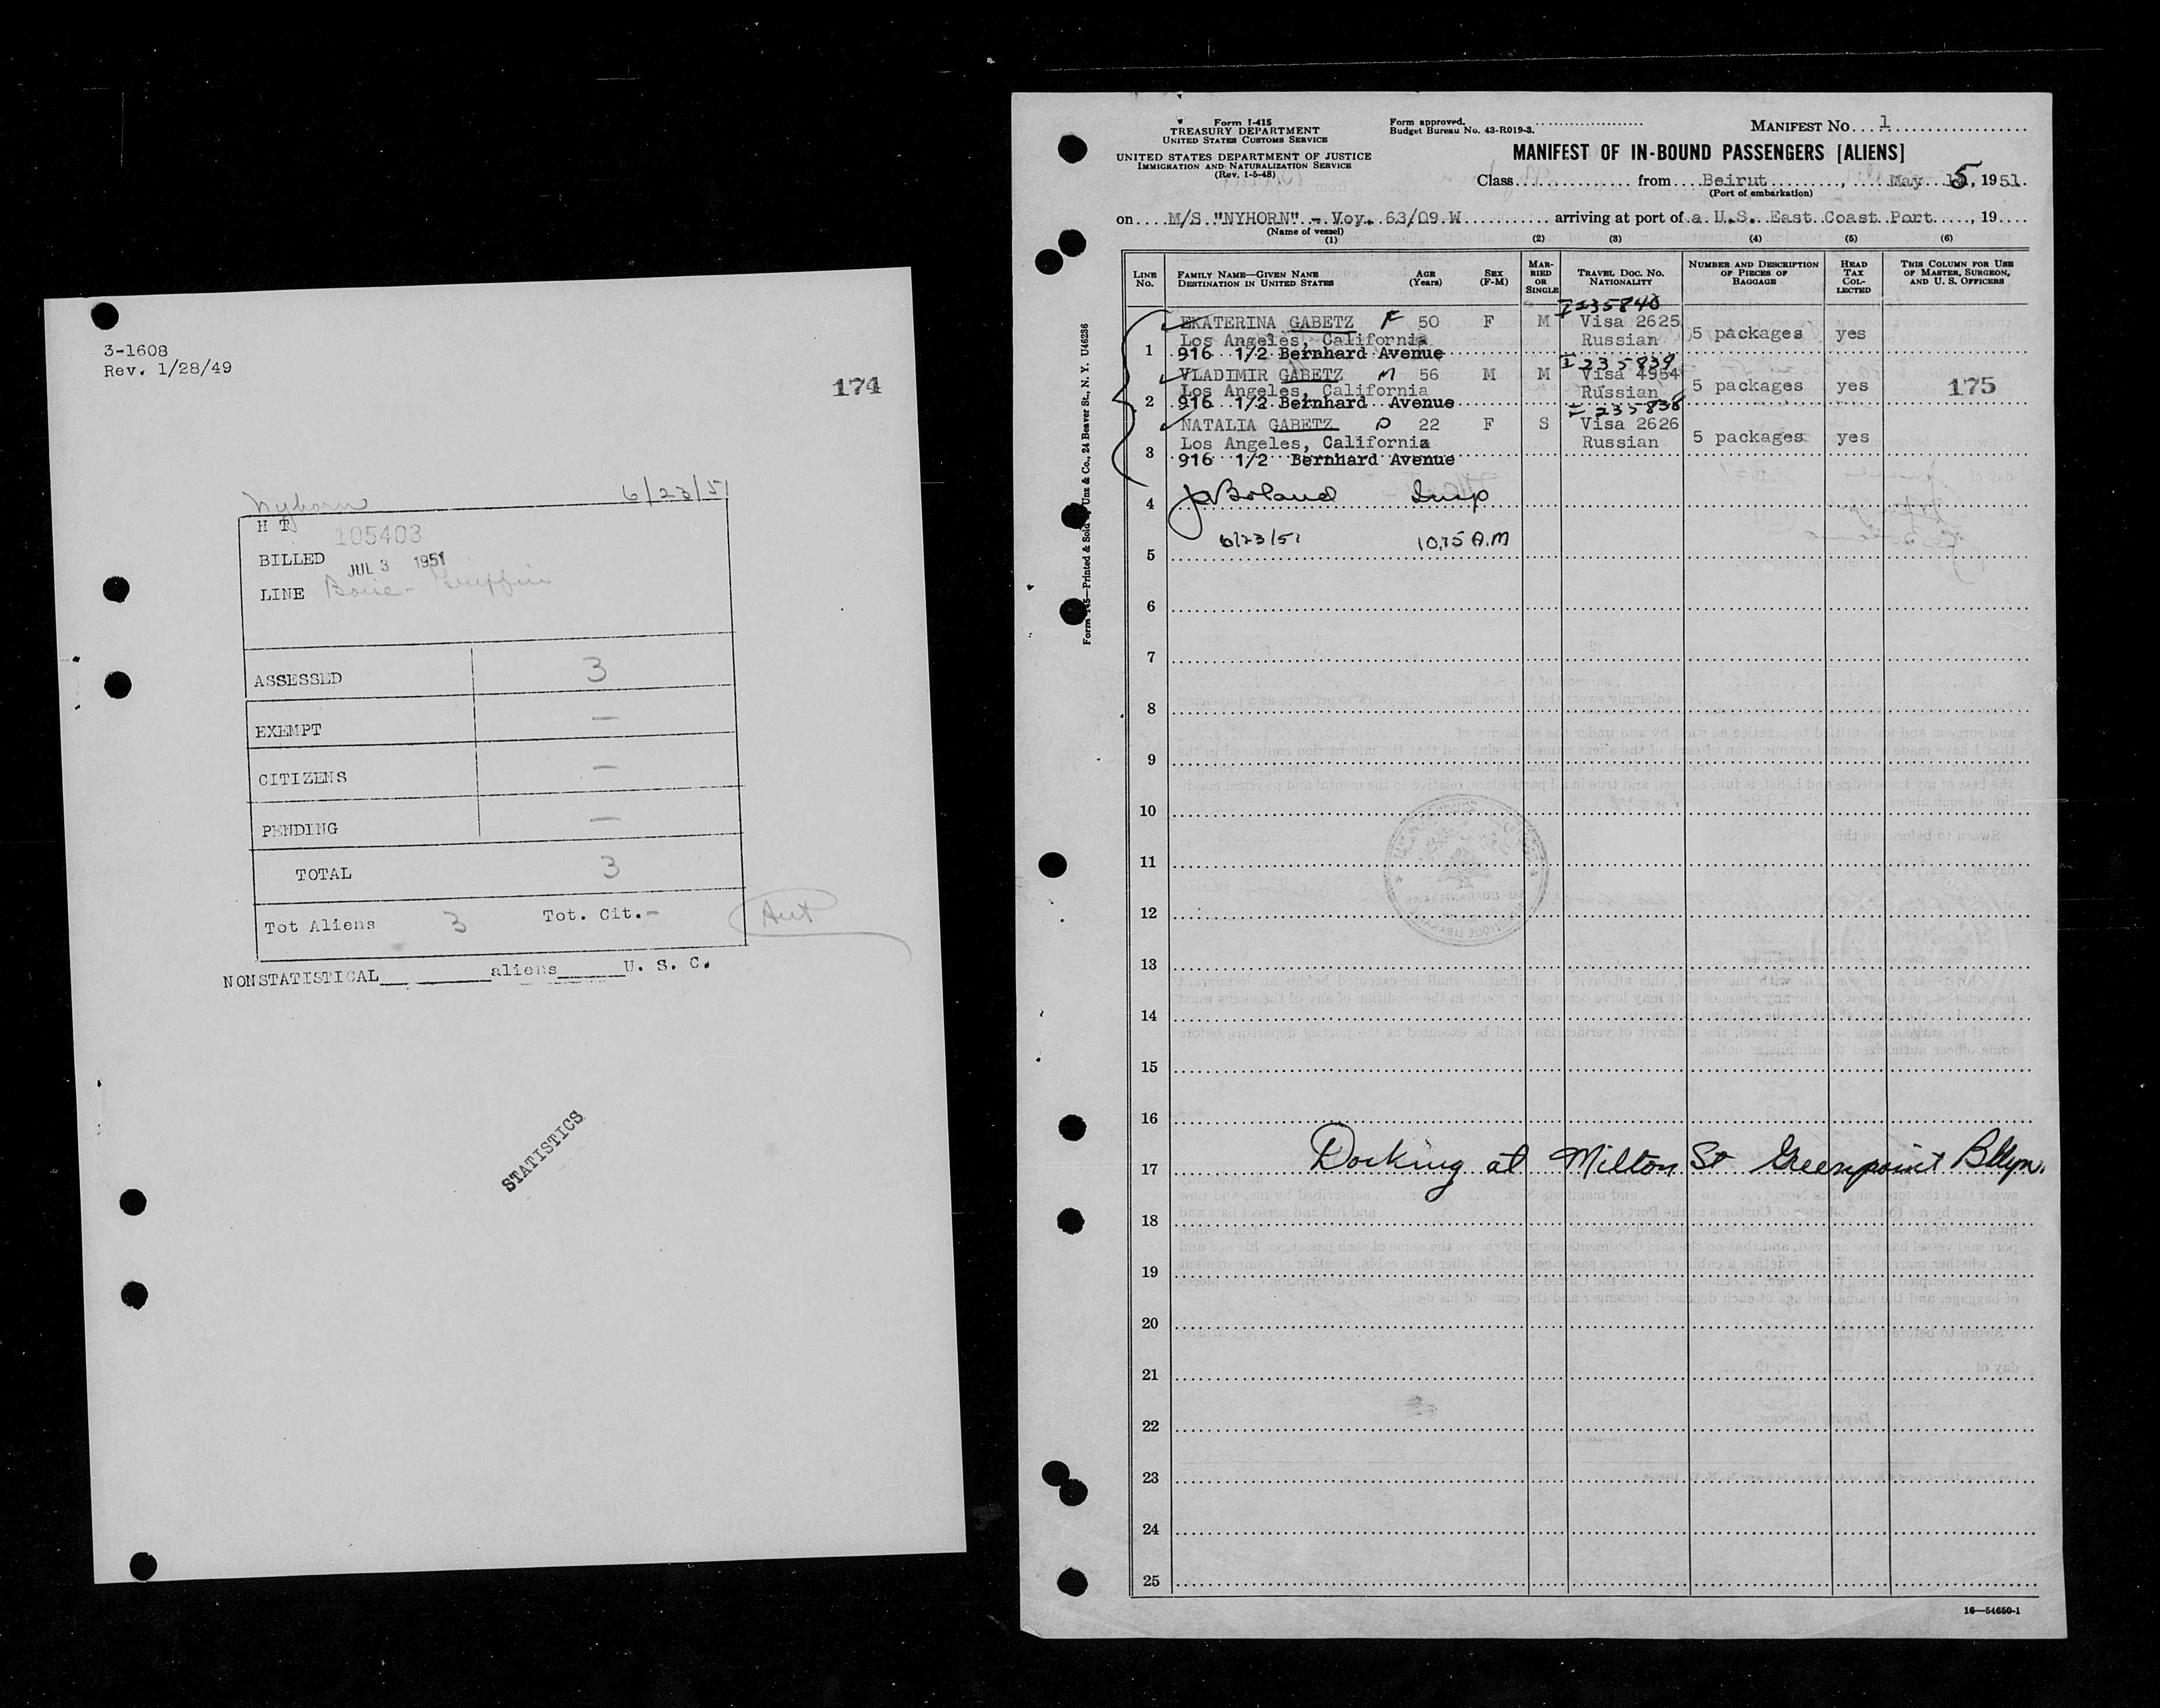 3-1608
Rev. 1/28/49
174
Nyhorn 6/23/51
H T 105403
BILLED JUL 3 1951
LINE Boise-Griffin
ASSESSED 3
EXEMPT —
CITIZENS —
PENDING —
TOTAL 3
Tot Aliens 3 Tot. Cit.-
NONSTATISTICAL aliens U. S. C.
STATISTICS
Form I-415
TREASURY DEPARTMENT
UNITED STATES CUSTOMS SERVICE
UNITED STATES DEPARTMENT OF JUSTICE
IMMIGRATION AND NATURALIZATION SERVICE
(Rev. 1-5-48)
Form approved.
Budget Bureau No. 43-R019-3.
MANIFEST NO. 1
MANIFEST OF IN-BOUND PASSENGERS [ALIENS]
Class from Beirut, May 5, 1951.
(Port of embarkation)
on M/S "NYHORN" - Voy. 63/09 W arriving at port of a U.S. East Coast Port, 19
(Name of vessel)
(1) (2) (3) (4) (5) (6)
LINE NO. FAMILY NAME—GIVEN NAME DESTINATION IN UNITED STATES AGE (Years) SEX (F-M) MARRIED OR SINGLE TRAVEL DOC. NO. NATIONALITY NUMBER AND DESCRIPTION OF PIECES OF BAGGAGE HEAD TAX COLLECTED THIS COLUMN FOR USE OF MASTER, SURGEON, AND U. S. OFFICERS
I 235840
EKATERINA GABETZ F 50 F M Visa 2625
Los Angeles, California Russian 5 packages yes
1 916 1/2 Bernhard Avenue
I 235839
VLADIMIR GABETZ M 56 M M Visa 4954
Los Angeles, California Russian 5 packages yes 175
2 916 1/2 Bernhard Avenue
I 235838
NATALIA GABETZ D 22 F S Visa 2626
Los Angeles, California Russian 5 packages yes
3 916 1/2 Bernhard Avenue
4 Boland Insp
5 6/23/51 10,15 A.M
6
7
8
9
10
11
12
13
14
15
16
17 Docking at Milton St Greenpoint Bklyn.
18
19
20
21
22
23
24
25
16—54650-1